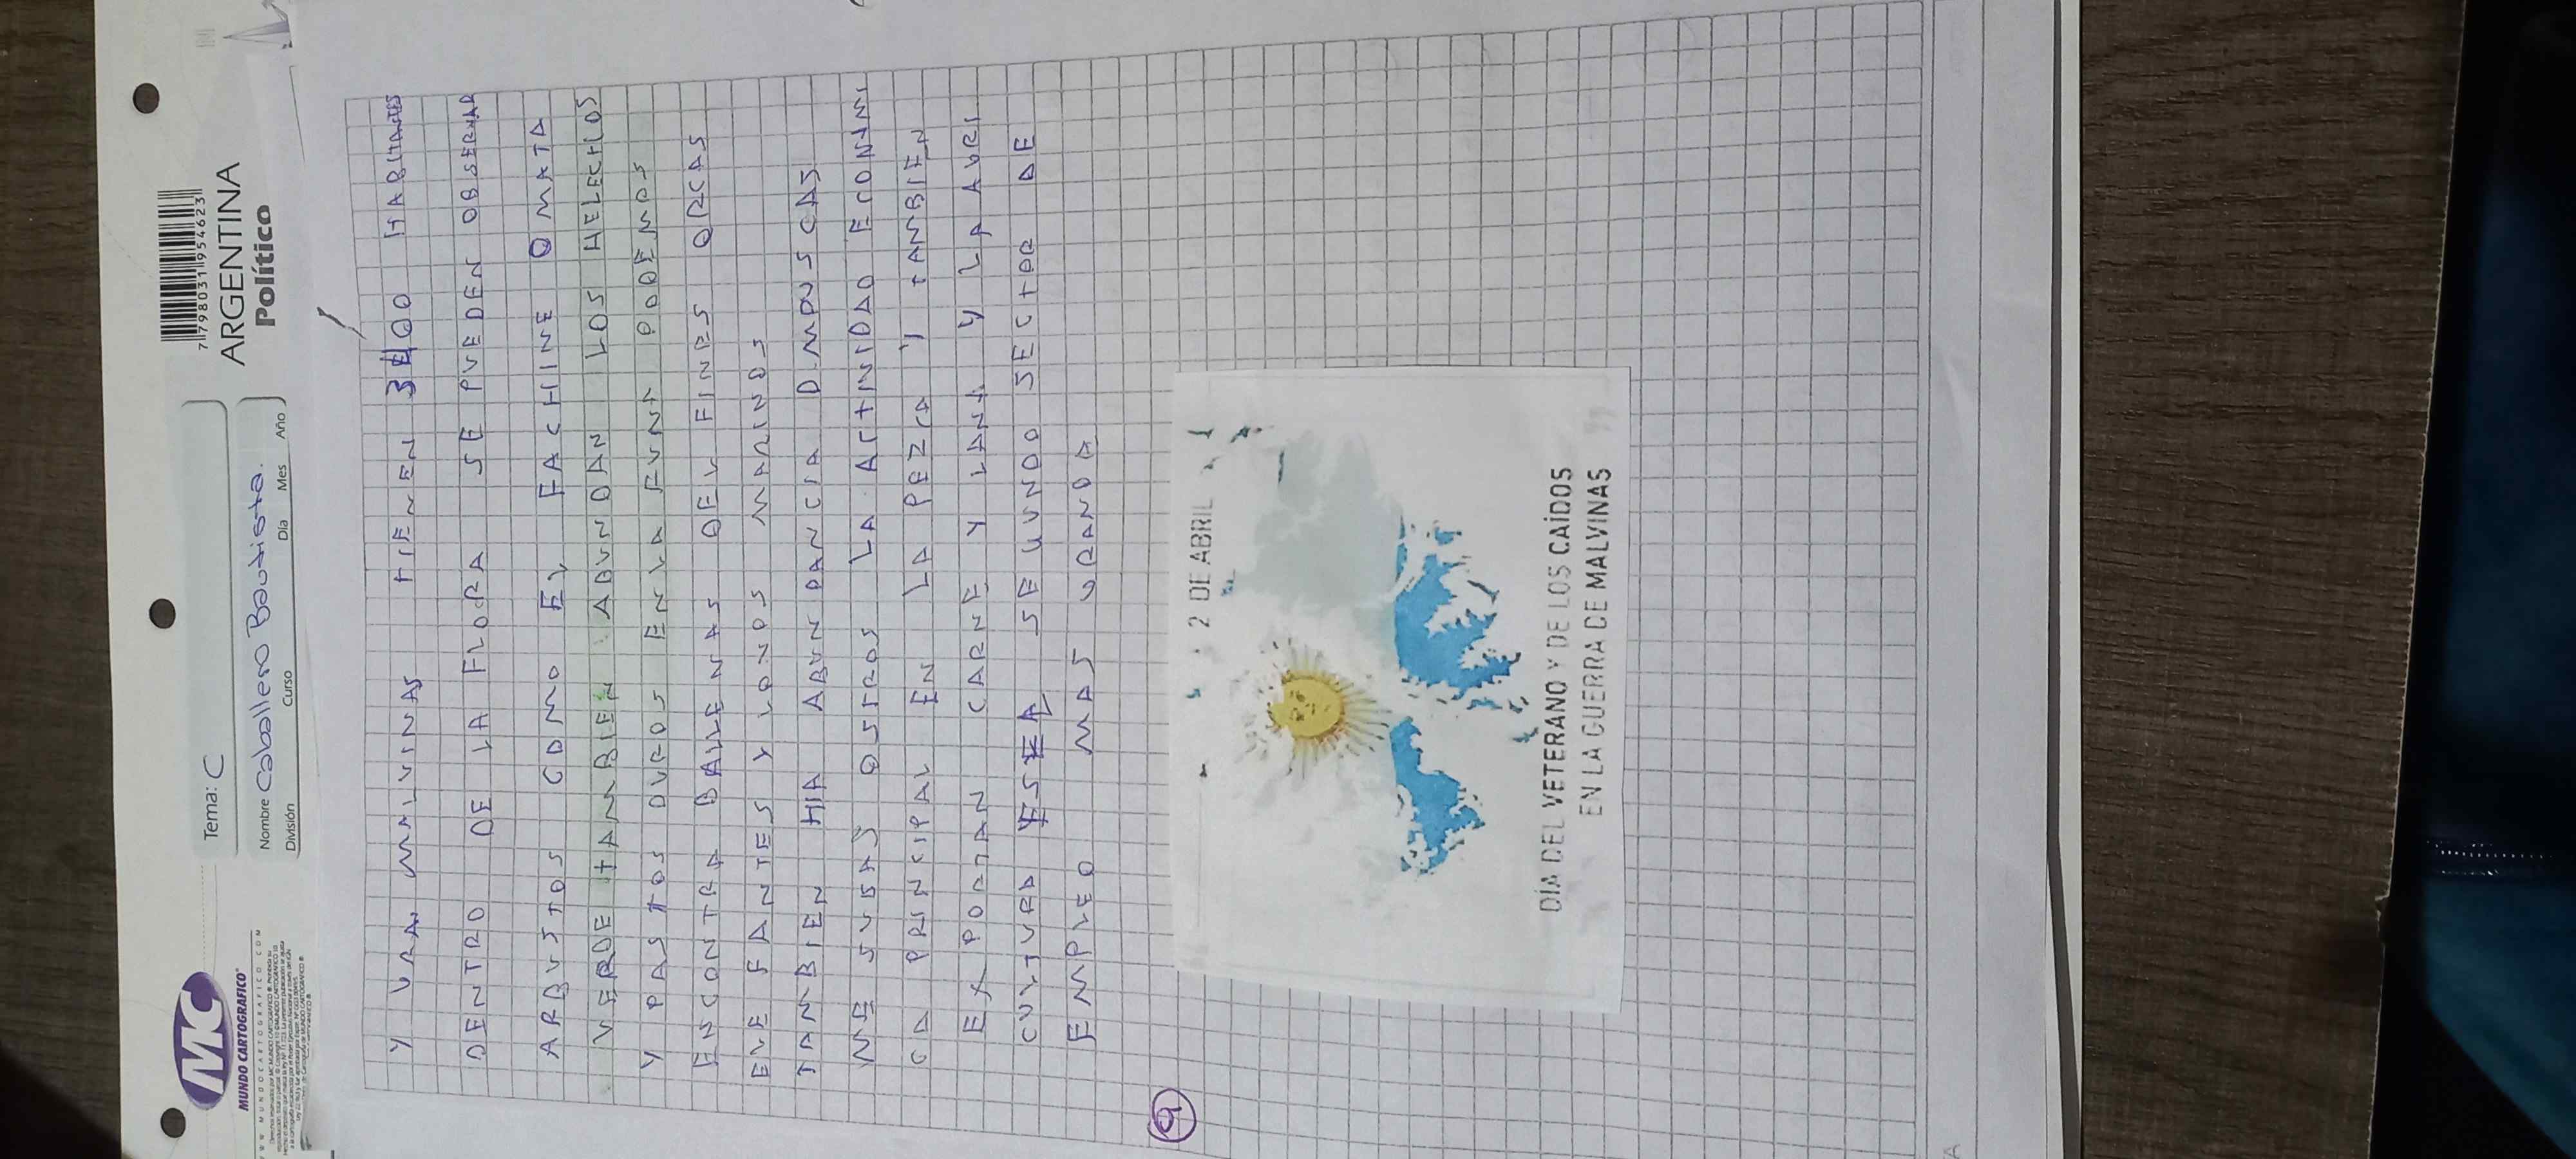 MC
MUNDO CARTOGRAFICO
WWW.MUNDOCARTOGRAFICO.COM
Tema: C
Nombre Caballero Bautista.
División Curso Día Mes Año
7 798031 954623
ARGENTINA
Político
Y GRAN MALVINAS TIENEN 3400 HABITANTES
DENTRO DE LA FLORA SE PUEDEN OBSERVAR
ARBUSTOS COMO EL FACHINE O MATA
VERDE TAMBIEN ABUNDAN LOS HELECHOS
Y PASTOS DUROS EN LA FUNA PODEMOS
ENCONTRA BALLENAS DEL FINES ORCAS
ELE FANTES Y LONOS MARINOS
TAMBIEN HIA ABUNDANCIA D MOUSCAS
ME SUSAS OSTROS LA ACTIVIDAD ECONMI
CA PRINCIPAL EN LA PEZCA Y TAMBIEN
EXPORTAN CARNE Y LANA Y LA AURI
CULTURA SE UUNDO SECTOR DE
EMPLEO MAS GRANDA
9
2 DE ABRIL
DÍA DEL VETERANO Y DE LOS CAÍDOS
EN LA GUERRA DE MALVINAS